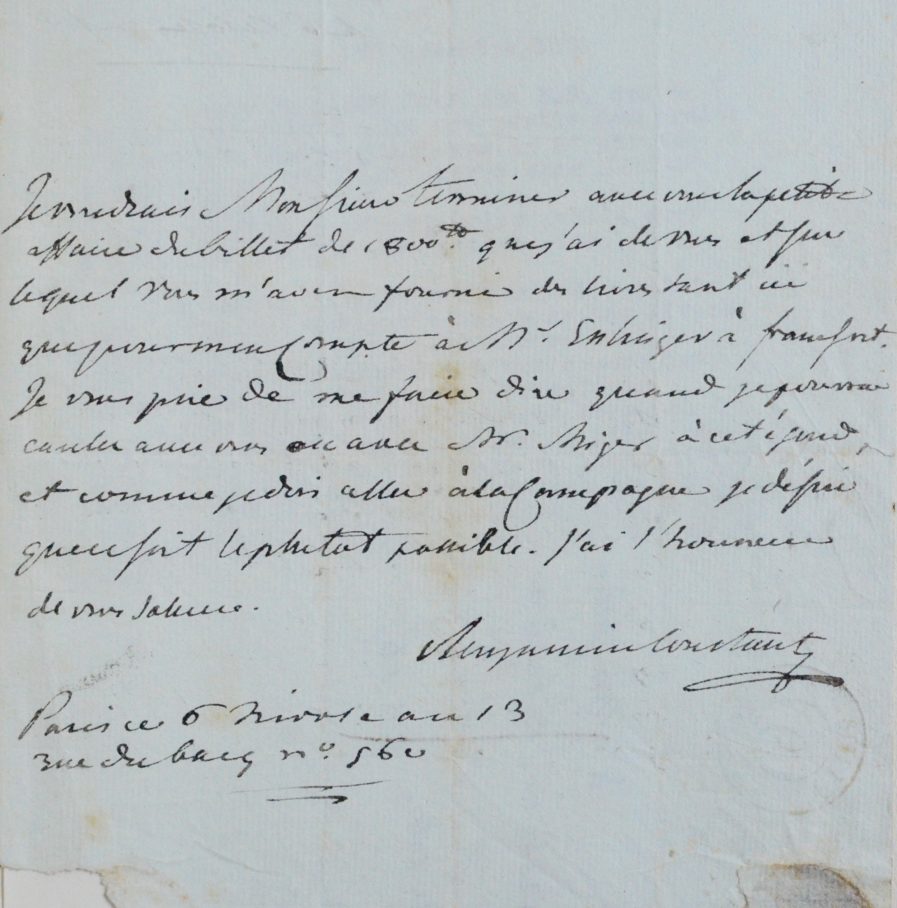 Je voudrais Monsieur terminer avec vous la petite
affaire du billet de 1800 ₶ que j'ai de vous et sur
lequel vous m'avez fourni des livres tant ici
que pour mon Compte à Mr. Eslinger à francfort.
Je vous prie de me faire dire quand je pourrai
causer avec vous ou avec Mr. à cet égard,
et comme je dois aller à la Campagne je désire
que ce soit le plutot possible. J'ai l'honneur
de vous saluer.
Benjamin Constant
Paris ce 6 Nivose an 13
rue du bacq no. 560